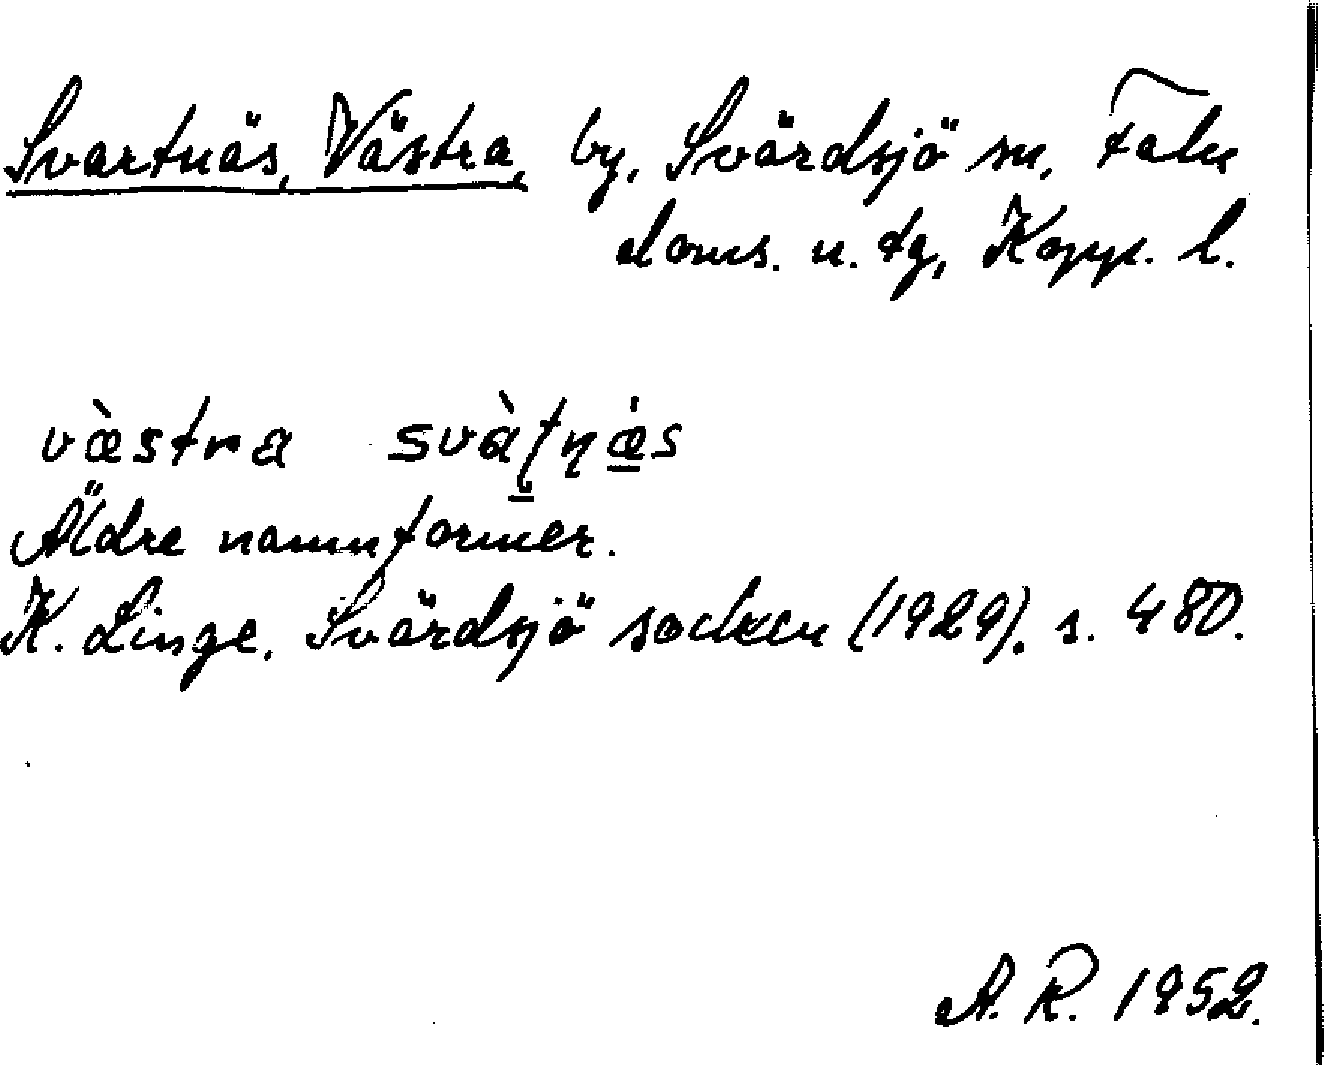 Svartnäs, Västra, by, Svärdsjö sn, Falu
doms. n. tg, Kopp. l.
væ̀stra svàʈɳæs
Äldre namnformer.
K. Linge, Svärdsjö socken (1929). s. 480.
A. R. 1952.